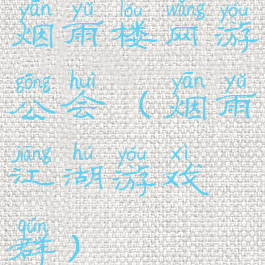 yān yǔ lóu wǎng yóu
烟雨楼网游
gōng huì yān yǔ
公会(烟雨
jiāng hú yóu xì
江湖游戏
qún
群)